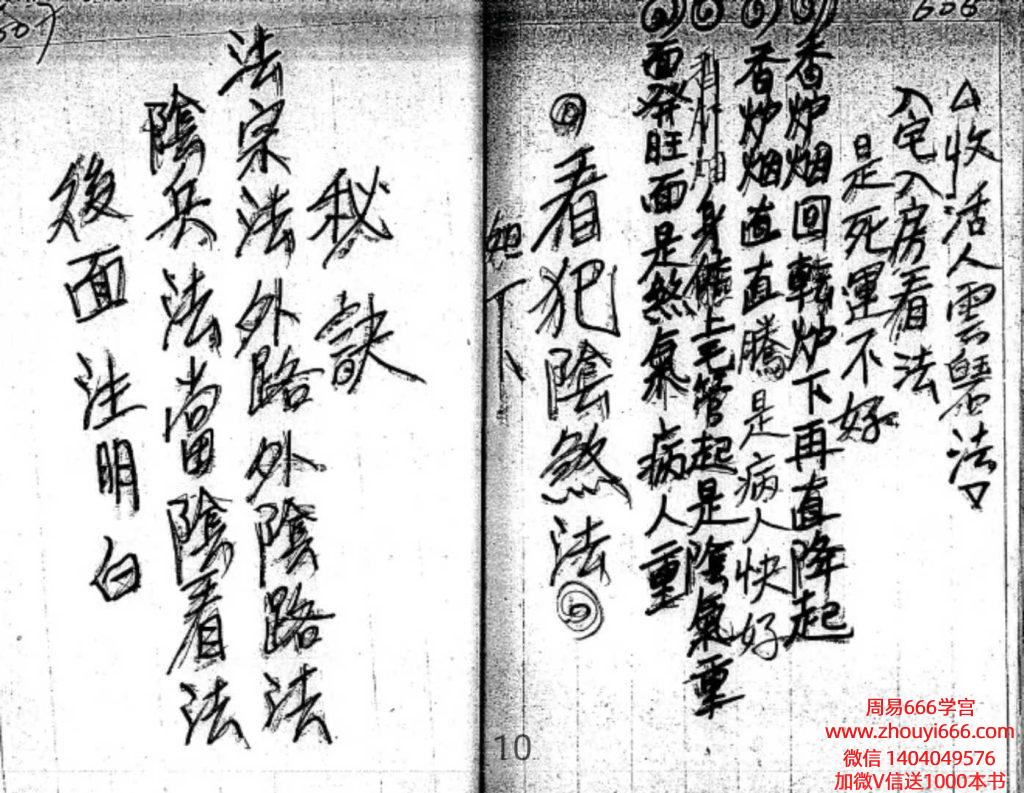 606
△收活人雲法
入宅入房看法
是死運不好
香炉烟回轉炉下再直降起
香炉烟直直騰是病人快好
香炉烟身體上毛管起是陰氣重
面發旺面是煞氣病人重
看犯陰煞法
下
607
秘訣
法宗法外路外陰路法
陰兵法當陰看法
後面注明白
10
周易666学宫
www.zhouyi666.com
微信 1404049576
加微V信送1000本书